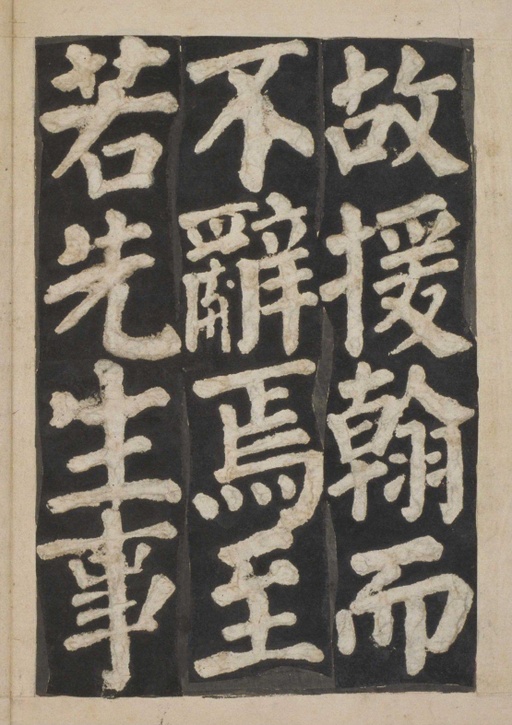 故援翰而
不辭焉至
若先生事